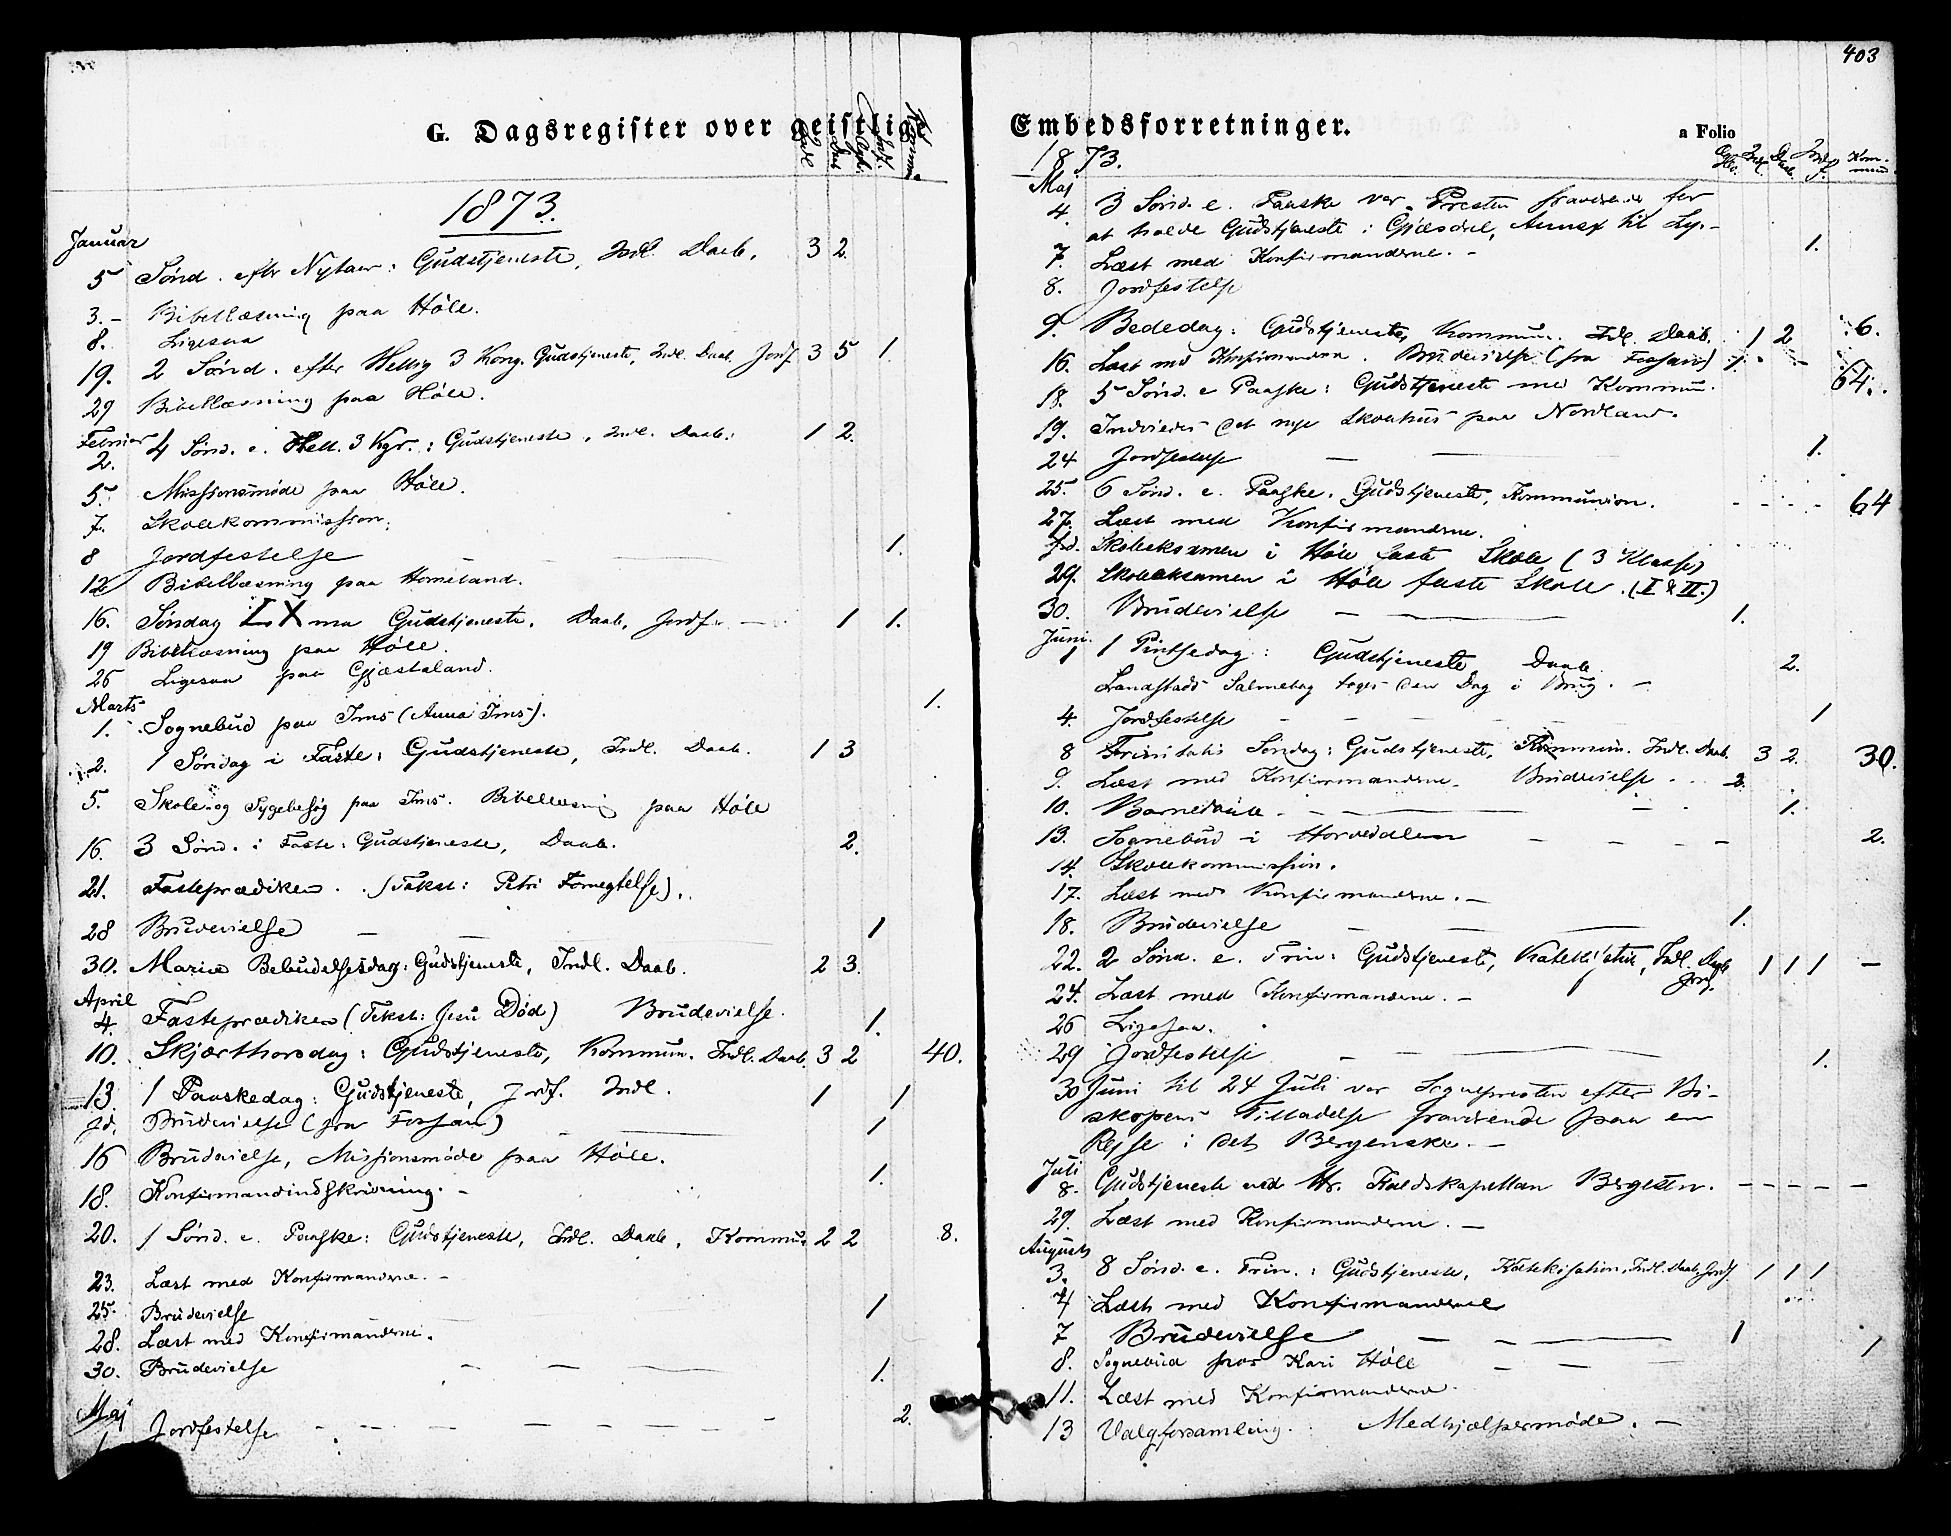 403
G. Dagsregister over geistlige
1873.
Januar
5 Sønd. efter Nytaar: Gudstjeneste, Indl. Daab. 3 2.
3. Bibellæsning paa Høle.
8. Ligesaa
19. 2 Sønd. efter Hellig 3 Kong. Gudstjeneste, Indl. Daab, Jordf. 3 5 1.
29 Bibellæsning paa Høle.
Februar
2. 4 Sønd. e. Hell. 3 Kgr.: Gudstjeneste, Indl. Daab. 1 2.
5. Missionsmøde paa Høle.
7. Skolekommission.
8 Jordfestelse 1.
12 Bibellæsning paa Homeland.
16. Søndag LXma Gudstjeneste, Daab, Jordf. 1 1.
19 Bibellæsning paa Høle.
26 Ligesaa paa Gjæstaland.
Marts
1. Sognebud paa Ims (Anna Ims). 1.
2. 1 Søndag i Faste: Gudstjeneste, Indl. Daab. 1 3
5. Skole og Sygebesøg paa Ims. Bibellæsning paa Høle
16. 3 Sønd. i Faste: Gudstjeneste, Daab. 2.
21. Fasteprædiken. (Tekst: Petri Fornegtelse).
28 Brudevielse 1
30. Mariæ Bebudelsesdag: Gudstjeneste, Indl. Daab. 2 3.
April
4. Fasteprædiken (Tekst: Jesu Død) Brudevielse. 1.
10. Skjærthorsdag: Gudstjeneste, Kommun. Indl. Daab. 3 2 40.
13. 1 Paaskedag: Gudstjeneste, Jordf. Indl. 1 1
Jd. Brudevielse (fra Forsan) 1
16 Brudevielse, Missionsmøde paa Høle. 1.
18. Konfirmandindskrivning.
20. 1 Sønd. e. Paaske: Gudstjeneste, Indl. Daab, Kommun. 2 2 8.
23. Læst med Konfirmanderne.
25. Brudevielse 1
28. Læst med Konfirmanderne.
30. Brudevielse 1.
Maj
1 Jordfestelse 2.
Embedsforretninger.
a Folio
1873.
Maj
4. 3 Sønd. e. Paaske var Presten fraværende for
at holde Gudstjeneste i Gjæsdal, Annex til Ly.
7. Læst med Konfirmanderne. 1.
8. Jordfestelse
9. Bededag: Gudstjeneste, Kommun. Indl. Daab. 1 2 6.
16. Læst med Konfirmanderne. Brudevielse (fra Forsan) 1.
18. 5 Sønd. e Paaske: Gudstjeneste med Kommun. 64.
19. Indviedes det nye Skolehus paa Nordland.
24 Jordfestelse 1.
25. 6 Sønd. e. Paaske. Gudstjeneste, Kommunion. 64
27. Læst med Konfirmanderne.
Jd. Skoleeksamen i Høle faste Skole (3 Klasse)
29. Skoleeksamen i Høle faste Skole. (I & II.)
30. Brudevielse 1.
Juni
1 1 Pintsedag: Gudstjeneste Daab. 2.
Landstads Salmebog toges den Dag i Brug.
4. Jordfestelse 1
8 Trinitatis Søndag: Gudstjeneste, Kommun. Indl. Daab. 3 2. 30.
9. Læst med Konfirmanderne. Brudevielse. 2.
10. Barnedaab. 1.
13. Sognebud i Horvedalen 2.
14. Skolekommission.
17. Læst med Konfirmanderne.
18. Brudevielse 1.
22. 2 Sønd. e. Trin: Gudstjeneste, Katekisation, Indl. Daab Jordf. 1 1 1
24. Læst med Konfirmanderne.
26 Ligesaa.
29 Jordfestelse 1.
30 Juni til 24 Juli var Sognepresten efter Bi-
skopens Tilladelse fraværende paa en
Rejse i det Bergenske.
Juli
8. Gudstjeneste ved Hr. Kaldskapellan Bergesen.
29. Læst med Konfirmanderne.
August
3. 8 Sønd. e. Trin.: Gudstjeneste, Katekisation, Indl. Daab, Jordf. 1 1 1
4 Læst med Konfirmanderne
7 Brudevielse 1
8. Sognebud hos Kari Høle 1
11. Læst med Konfirmanderne.
13 Valgforsamling. Medhjælpermøde.